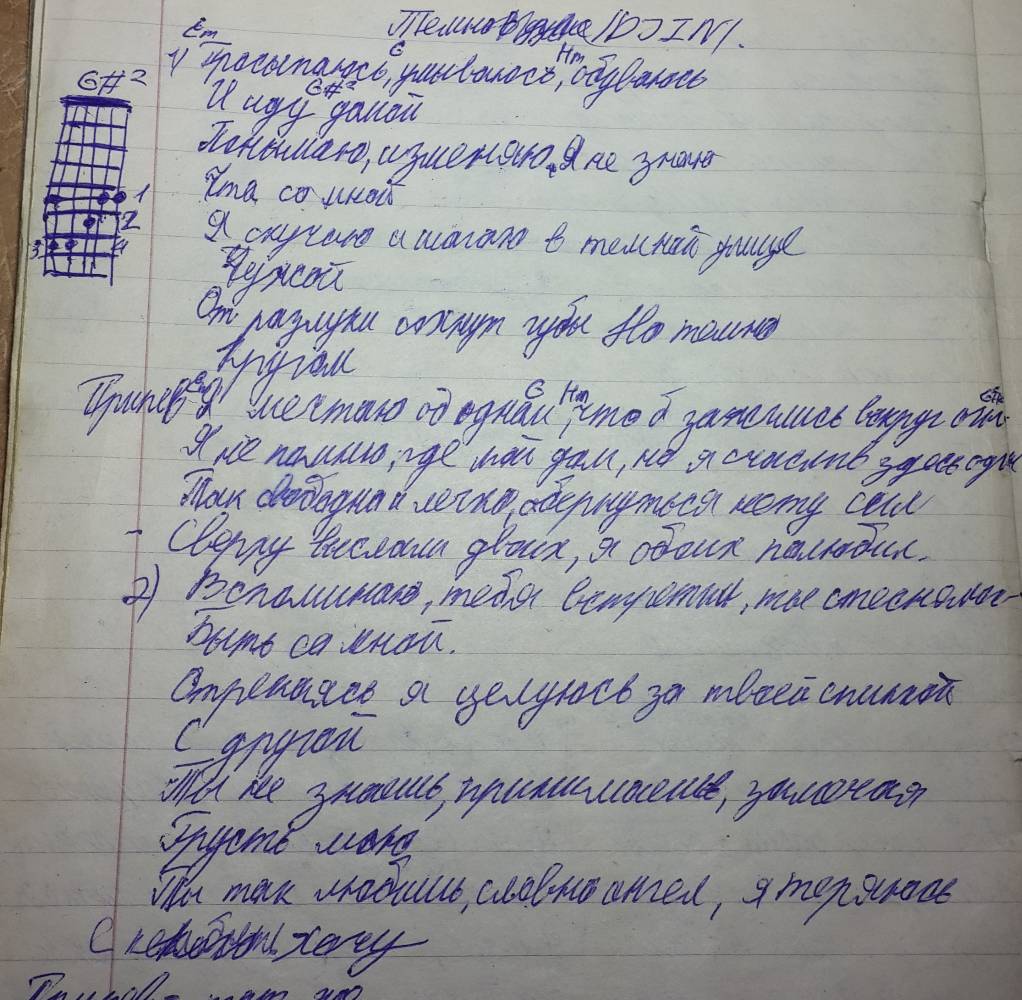 Темно (DJIN).
Em G Hm
1) Просыпаюсь, умываюсь, обуваюсь
G#²
И иду домой
G#²
1
2
3 4
Понимаю, изменяю, Я не знаю
Что со мной
Я скучаю и шагаю в темной улице
Чужой
От разлуки сохнут губы Но темно
Кругом
Em G Hm G#²
Припев Я мечтаю об одном, что б зажглись вокруг огни
Я не помню, где мой дом, но я счастлив здесь один
Так свободно и легко, обернуться нету сил
- Сверху выслали двоих, я обоих полюбил.
2) Вспоминаю, тебя встретил, ты стеснялась
Быть со мной.
я целуюсь за твоей спиной
С другой
Ты не знаешь, принимаешь,
Грусть мою
Ты так любишь, словно ангел, я теряюсь
С хочу
Припев - тот же